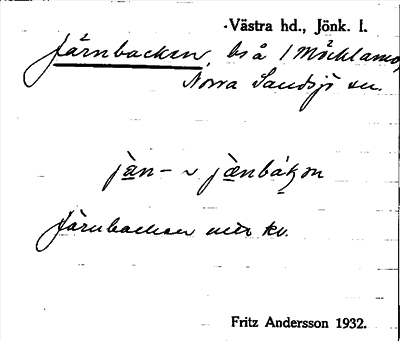 Västra hd., Jönk. l.
Järnbacken, bs å 1 Möcklamo,
Norra Sandsjö sn.
jàn- ~ jænbákən
Järnbacken
Fritz Andersson 1932.